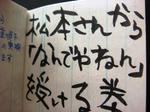 松本さんから
「なんでやねん」
授ける巻